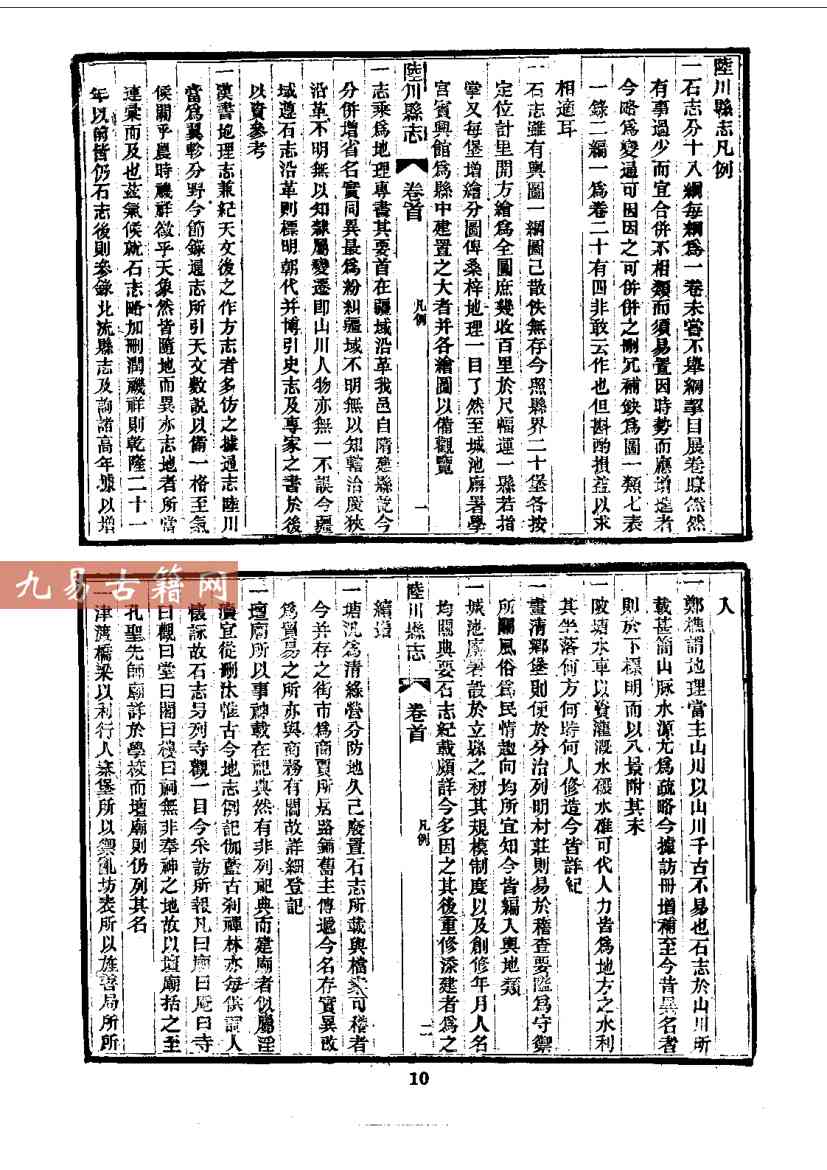 陸川縣志凡例
一石志分十八綱每綱為一卷未嘗不舉綱挈目展卷瞭然然
有事過少而宜合併不相類而須易置因時勢而應增進者
今略為變通可因因之可併併之刪冗補缺為圖一類七表
一錄二編一為卷二十有四非敢云作也但斟酌損益以求
相適耳
一石志雖有輿圖一綱圖已散佚無存今照縣界二十堡各按
定位計里開方繪為全圖庶幾收百里於尺幅運一縣若指
掌又每堡增繪分圖俾桑梓地理一目了然至城池廨署學
宮賓興館為縣中建置之大者并各繪圖以備觀覽
陸川縣志
卷首
凡例
一
一志乘為地理專書其要首在疆域沿革我邑自隋建縣訖今
分併增省名實同異最為紛糾疆域不明無以知轄治廣狹
沿革不明無以知隸屬變遷即山川人物亦無一不誤今疆
域遵石志沿革則標明朝代并博引史志及專家之書於後
以資參考
一漢書地理志兼紀天文後之作方志者多仿之據通志陸川
當為翼軫分野今節錄通志所引天文數說以備一格至氣
候關乎農時禨祥徵乎天象然皆隨地而異亦志地者所當
連彙而及也茲氣候就石志略加刪潤禨祥則乾隆二十一
年以前皆仍石志後則參錄北流縣志及詢諸高年據以增
入
一鄭樵謂地理當主山川以山川千古不易也石志於山川所
載甚簡山脈水源尤為疏略今據訪冊增補至今昔異名者
則於下標明而以八景附其末
一陂塘水車以資灌溉水碾水碓可代人力皆為地方之水利
其坐落何方何時何人修造今皆詳紀
一畫清鄉堡則便於分治列明村莊則易於稽查要隘為守禦
所關風俗為民情趨向均所宜知今皆編入輿地類
一城池廨署設於立縣之初其規模制度以及創修年月人名
均關典要石志紀載頗詳今多因之其後重修添建者為之
陸川縣志
卷首
凡例
二
續登
一塘汛為清綠營分防地久已廢置石志所載與檔案可稽者
今并存之街市為商賈所居路鋪舊主傳遞今名存實異改
為貿易之所亦與商務有關故詳細登記
一壇廟所以事神載在祀典然有非列祀典而建廟者似屬淫
瀆宜從刪汰惟古今地志例記伽藍古剎禪林亦每供詞人
懷詠故石志另列寺觀一目今釆訪所報凡曰廟曰庵曰寺
曰觀曰堂曰閣曰樓曰祠無非奉神之地故以壇廟括之至
孔聖先師廟詳於學校而壇廟則仍列其名
一津渡橋梁以利行人寨堡所以禦亂坊表所以旌善局所所
九易古籍网
10